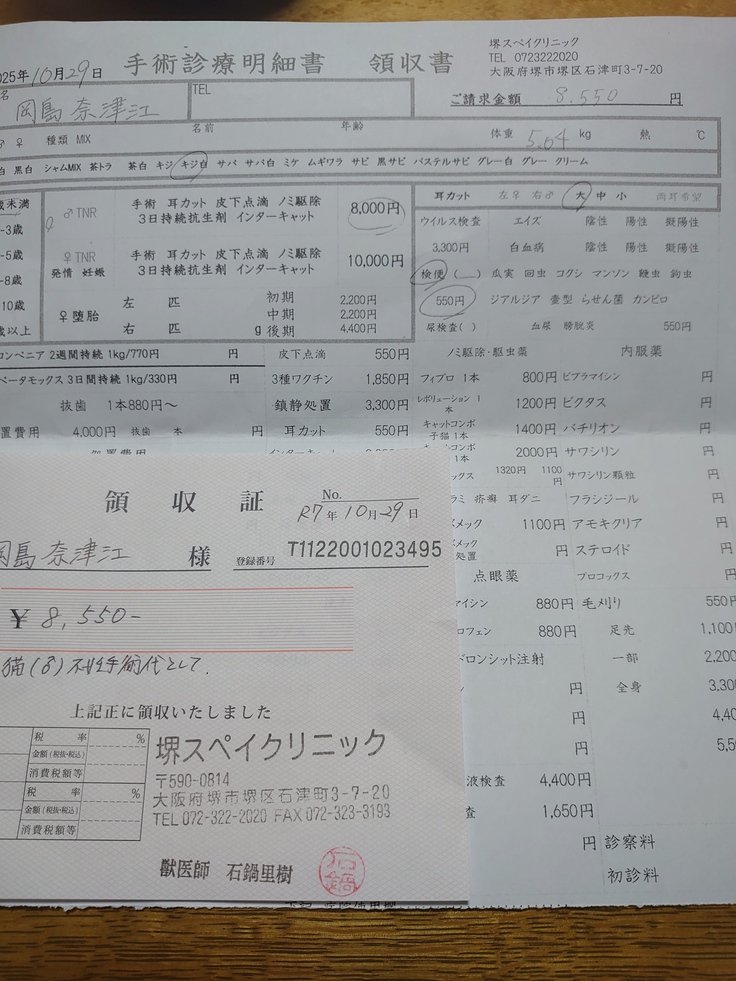 025年10月29日
手術診療明細書 領収書
堺スペイクリニック
TEL 0723222020
大阪府堺市堺区石津町3-7-20
名
岡島 奈津江
TEL
ご請求金額 8,550 円
♂ ♀ 種類 MIX
名前
年齢
体重 5.04 kg 熱 ℃
白 黒白 シャムMIX 茶トラ 茶白 キジ キジ白 サバ サバ白 ミケ ムギワラ サビ 黒サビ パステルサビ グレー白 グレー クリーム
歳未満
-3歳
-5歳
-8歳
-10歳
歳以上
♂TNR
手術 耳カット 皮下点滴 ノミ駆除
3日持続抗生剤 インターキャット
8,000円
♀TNR
発情 妊娠
手術 耳カット 皮下点滴 ノミ駆除
3日持続抗生剤 インターキャット
10,000円
♀堕胎
左 匹
右 匹 g
初期 2,200円
中期 2,200円
後期 4,400円
耳カット 左♀ 右♂ 大 中 小 両耳希望
ウイルス検査 エイズ 陰性 陽性 擬陽性
3,300円 白血病 陰性 陽性 擬陽性
検便 ( ) 瓜実 回虫 コクシ マンソン 鞭虫 鉤虫
550円 ジアルジア 壷型 らせん菌 カンピロ
尿検査( ) 血尿 膀胱炎 550円
コンベニア 2週間持続 1kg/770円 円
ベータモックス 3日間持続 1kg/330円 円
抜歯 1本880円～
置費用 4,000円 抜歯 本 円
皮下点滴 550円
3種ワクチン 1,850円
鎮静処置 3,300円
耳カット 550円
ノミ駆除・駆虫薬
フィプロ 1本 800円
レボリューション 1本 1200円
キャットコンボ 子猫 1本 1400円
キャットコンボ 1本 2000円
ックス 1320円 1100円
ラミ 疥癬 耳ダニ
メック 1100円
メック 処置 円
点眼薬
マイシン 880円
ロフェン 880円
ドロンシット注射
円
円
円
液検査 4,400円
査 1,650円
円
内服薬
ビブラマイシン 円
ビクタス 円
バチリオン 円
サワシリン 円
サワシリン顆粒 円
フラジール 円
アモキクリア 円
ステロイド 円
プロコックス 円
毛刈り 550円
足先 1,100
一部 2,200
全身 3,300
4,40
5,5
診察料
初診料
領収証
No.
R7年10月29日
岡島 奈津江 様
登録番号 T1122001023495
¥ 8,550-
猫(♂)不妊手術代として.
上記正に領収いたしました
税率 %
金額(税抜・税込)
消費税額等
税率 %
金額(税抜・税込)
消費税額等
堺スペイクリニック
〒590-0814
大阪府堺市堺区石津町3-7-20
TEL 072-322-2020 FAX 072-323-3193
獣医師 石鍋里樹
石鍋